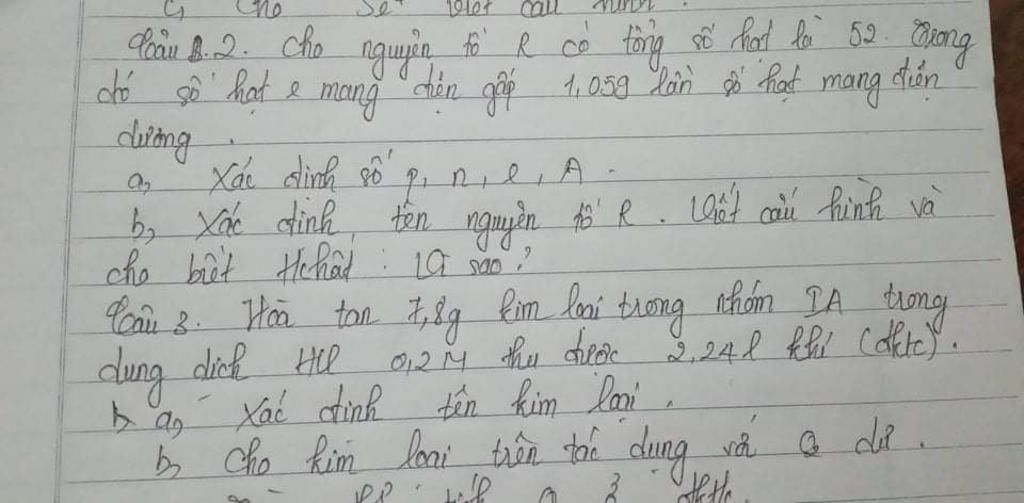 C, Cho Se viết cấu hình.
Câu 2. Cho nguyên tố R có tổng số hạt là 52. Trong
đó số hạt e mang điện gấp 1,059 lần số hạt mang điện
dương.
a, Xác định số p, n, e, A.
b, Xác định tên nguyên tố R. Viết cấu hình và
cho biết t/chất : vì sao?
Câu 3. Hoà tan 7,8g kim loại trong nhóm IA trong
dung dịch HCl 0,2M thu được 2,24l khí (đktc).
a, Xác định tên kim loại.
b, Cho kim loại trên tác dụng với dư.
đktc.